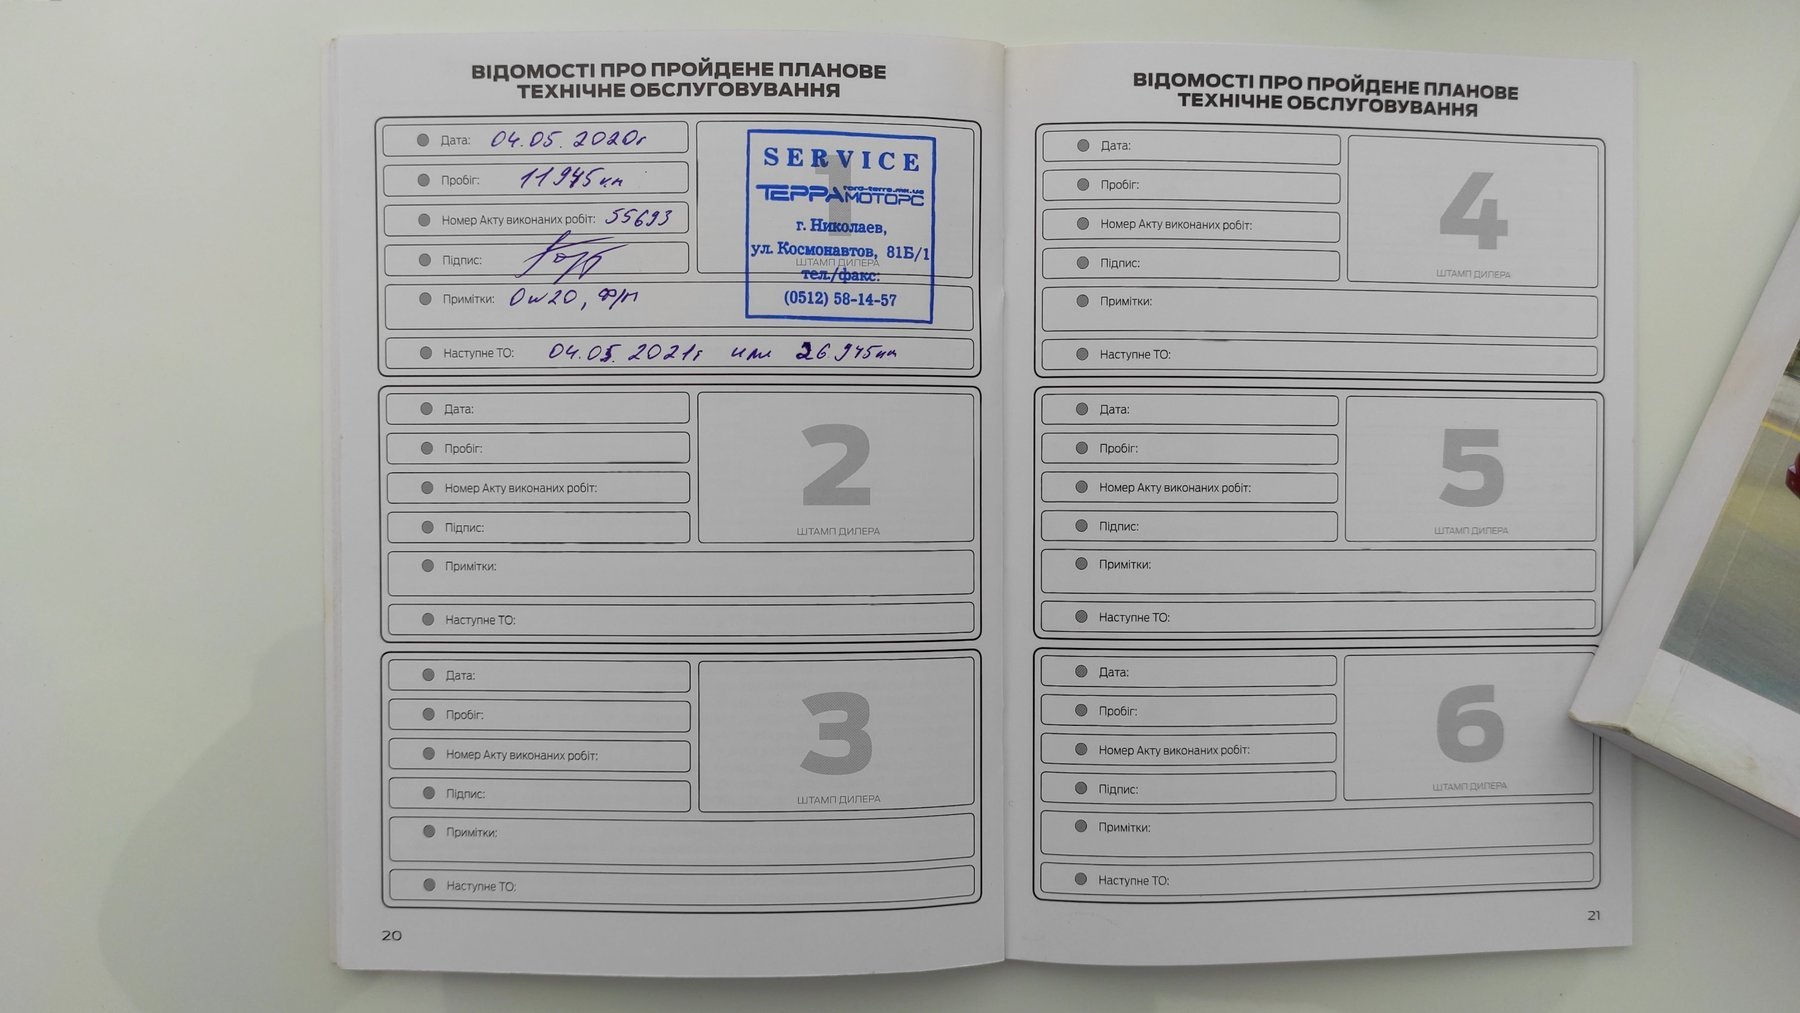 ВІДОМОСТІ ПРО ПРОЙДЕНЕ ПЛАНОВЕ
ТЕХНІЧНЕ ОБСЛУГОВУВАННЯ
Дата: 04.05.2020г
Пробіг: 11945км
Номер Акту виконаних робіт: 55693
Підпис:
Примітки: 0w20, Ф/М
Наступне ТО: 04.05.2021г или 26945км
1
ШТАМП ДИЛЕРА
SERVICE
ford-terra.mk.ua
ТЕРРА МОТОРС
г. Николаев,
ул. Космонавтов, 81Б/1
тел./факс:
(0512) 58-14-57
Дата:
Пробіг:
Номер Акту виконаних робіт:
Підпис:
Примітки:
Наступне ТО:
2
ШТАМП ДИЛЕРА
Дата:
Пробіг:
Номер Акту виконаних робіт:
Підпис:
Примітки:
Наступне ТО:
3
ШТАМП ДИЛЕРА
20
ВІДОМОСТІ ПРО ПРОЙДЕНЕ ПЛАНОВЕ
ТЕХНІЧНЕ ОБСЛУГОВУВАННЯ
Дата:
Пробіг:
Номер Акту виконаних робіт:
Підпис:
Примітки:
Наступне ТО:
4
ШТАМП ДИЛЕРА
Дата:
Пробіг:
Номер Акту виконаних робіт:
Підпис:
Примітки:
Наступне ТО:
5
ШТАМП ДИЛЕРА
Дата:
Пробіг:
Номер Акту виконаних робіт:
Підпис:
Примітки:
Наступне ТО:
6
ШТАМП ДИЛЕРА
21